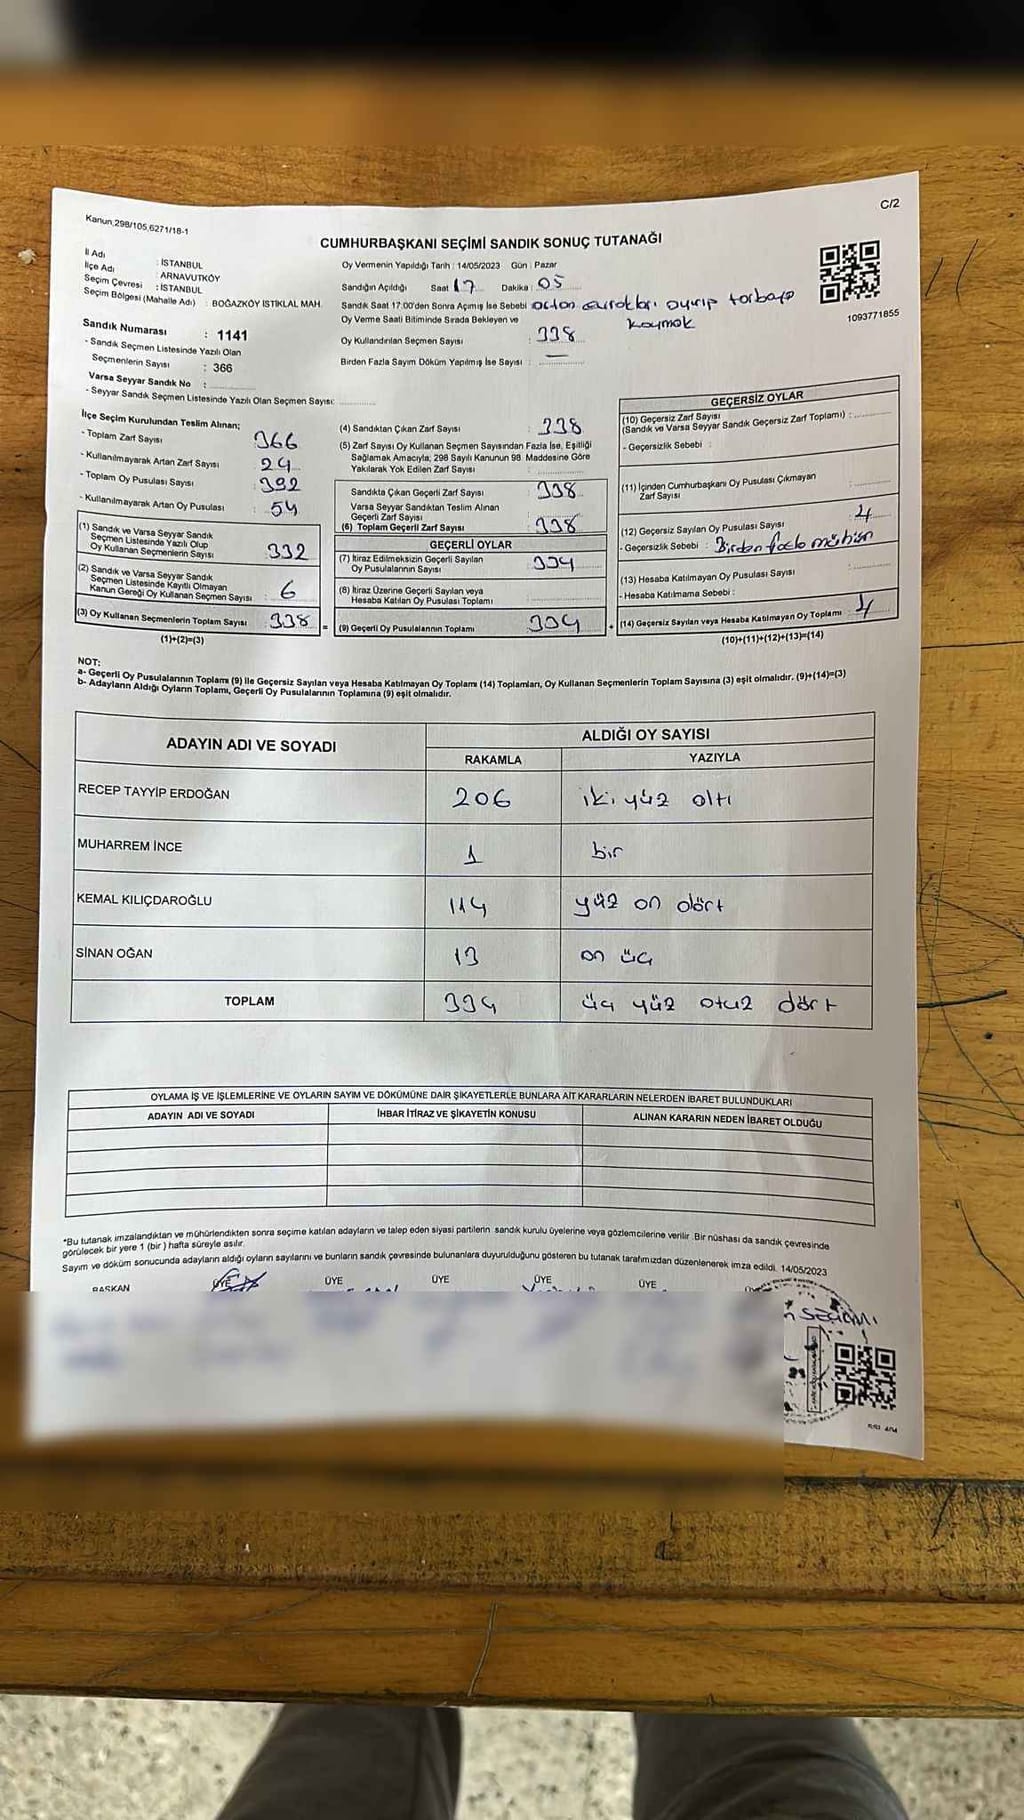 C/2
Kanun,298/105,6271/18-1
CUMHURBAŞKANI SEÇİMİ SANDIK SONUÇ TUTANAĞI
İl Adı : İSTANBUL
İlçe Adı : ARNAVUTKÖY
Seçim Çevresi : İSTANBUL
Seçim Bölgesi (Mahalle Adı) : BOĞAZKÖY İSTİKLAL MAH.
Sandık Numarası : 1141
- Sandık Seçmen Listesinde Yazılı Olan
Seçmenlerin Sayısı : 366
Varsa Seyyar Sandık No :
- Seyyar Sandık Seçmen Listesinde Yazılı Olan Seçmen Sayısı:
Oy Vermenin Yapıldığı Tarih : 14/05/2023 Gün : Pazar
Sandığın Açıldığı Saat 17 Dakika : 05
Sandık Saat 17:00'den Sonra Açımış İse Sebebi artan evrakları ayırıp torbaya
koymak
Oy Verme Saati Bitiminde Sırada Bekleyen ve
Oy Kullandırılan Seçmen Sayısı : 338
Birden Fazla Sayım Döküm Yapılmış İse Sayısı : —
1093771855
İlçe Seçim Kurulundan Teslim Alınan;
- Toplam Zarf Sayısı 366
- Kullanılmayarak Artan Zarf Sayısı 24
- Toplam Oy Pusulası Sayısı : 392
- Kullanılmayarak Artan Oy Pusulası : 54
(1) Sandık ve Varsa Seyyar Sandık
Seçmen Listesinde Yazılı Olup
Oy Kullanan Seçmenlerin Sayısı : 332
(2) Sandık ve Varsa Seyyar Sandık
Seçmen Listesinde Kayıtlı Olmayan
Kanun Gereği Oy Kullanan Seçmen Sayısı : 6
(3) Oy Kullanan Seçmenlerin Toplam Sayısı 338
(1)+(2)=(3)
(4) Sandıktan Çıkan Zarf Sayısı : 338
(5) Zarf Sayısı Oy Kullanan Seçmen Sayısından Fazla İse, Eşitliği
Sağlamak Amacıyla; 298 Sayılı Kanunun 98. Maddesine Göre
Yakılarak Yok Edilen Zarf Sayısı :
Sandıkta Çıkan Geçerli Zarf Sayısı : 338
Varsa Seyyar Sandıktan Teslim Alınan
Geçerli Zarf Sayısı :
(6) Toplam Geçerli Zarf Sayısı : 338
GEÇERLİ OYLAR
(7) İtiraz Edilmeksizin Geçerli Sayılan
Oy Pusulalarının Sayısı : 334
(8) İtiraz Üzerine Geçerli Sayılan veya
Hesaba Katılan Oy Pusulası Toplamı :
(9) Geçerli Oy Pusulalarının Toplamı : 334
GEÇERSİZ OYLAR
(10) Geçersiz Zarf Sayısı
(Sandık ve Varsa Seyyar Sandık Geçersiz Zarf Toplamı) :
- Geçersizlik Sebebi :
(11) İçinden Cumhurbaşkanı Oy Pusulası Çıkmayan
Zarf Sayısı :
(12) Geçersiz Sayılan Oy Pusulası Sayısı : 4
- Geçersizlik Sebebi : Birden fazla mühür
(13) Hesaba Katılmayan Oy Pusulası Sayısı :
- Hesaba Katılmama Sebebi :
(14) Geçersiz Sayılan veya Hesaba Katılmayan Oy Toplamı : 4
(10)+(11)+(12)+(13)=(14)
NOT:
a- Geçerli Oy Pusulalarının Toplamı (9) ile Geçersiz Sayılan veya Hesaba Katılmayan Oy Toplamı (14) Toplamları, Oy Kullanan Seçmenlerin Toplam Sayısına (3) eşit olmalıdır. (9)+(14)=(3)
b- Adayların Aldığı Oyların Toplamı, Geçerli Oy Pusulalarının Toplamına (9) eşit olmalıdır.
ADAYIN ADI VE SOYADI ALDIĞI OY SAYISI
RAKAMLA YAZIYLA
RECEP TAYYİP ERDOĞAN 206 iki yüz altı
MUHARREM İNCE 1 bir
KEMAL KILIÇDAROĞLU 114 yüz on dört
SİNAN OĞAN 13 on üç
TOPLAM 334 üç yüz otuz dört
OYLAMA İŞ VE İŞLEMLERİNE VE OYLARIN SAYIM VE DÖKÜMÜNE DAİR ŞİKAYETLERLE BUNLARA AİT KARARLARIN NELERDEN İBARET BULUNDUKLARI
ADAYIN ADI VE SOYADI İHBAR İTİRAZ VE ŞİKAYETİN KONUSU ALINAN KARARIN NEDEN İBARET OLDUĞU
*Bu tutanak imzalandıktan ve mühürlendikten sonra seçime katılan adayların ve talep eden siyasi partilerin sandık kurulu üyelerine veya gözlemcilerine verilir. Bir nüshası da sandık çevresinde
görülecek bir yere 1 (bir) hafta süreyle asılır.
Sayım ve döküm sonucunda adayların aldığı oyların sayılarını ve bunların sandık çevresinde bulunanlara duyurulduğunu gösteren bu tutanak tarafımızdan düzenlenerek imza edildi. 14/05/2023
BAŞKAN ÜYE ÜYE ÜYE ÜYE ÜYE